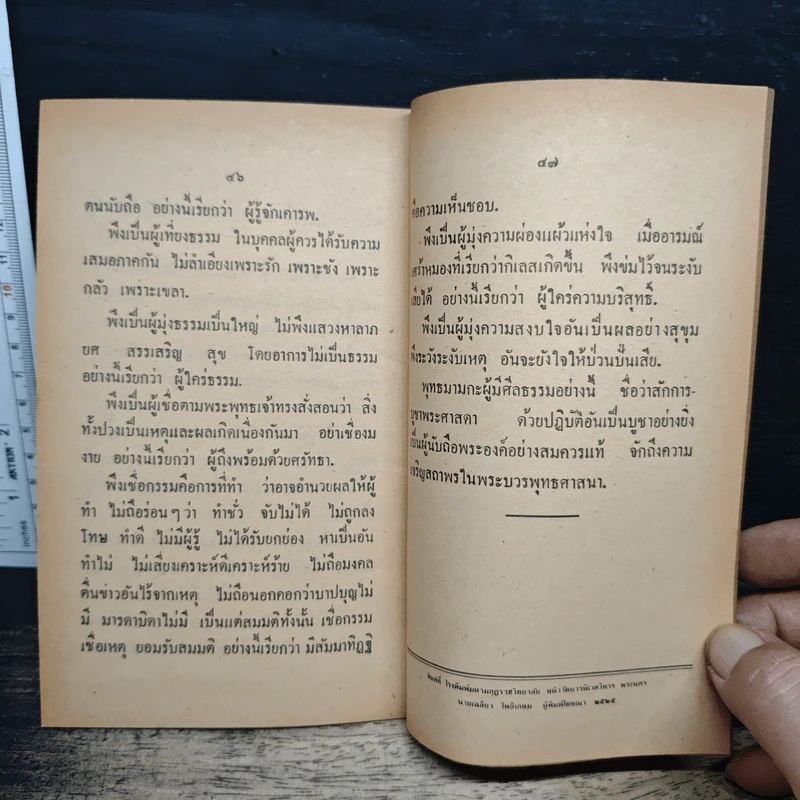 ๔๖
ตนนับถือ อย่างนี้เรียกว่า ผู้รู้จักเคารพ.
พึงเป็นผู้เที่ยงธรรม ในบุคคลผู้ควรได้รับความ
เสมอภาคกัน ไม่ลำเอียงเพราะรัก เพราะชัง เพราะ
กลัว เพราะเขลา.
พึงเป็นผู้มุ่งธรรมเป็นใหญ่ ไม่พึงแสวงหาลาภ
ยศ สรรเสริญ สุข โดยอาการไม่เป็นธรรม
อย่างนี้เรียกว่า ผู้ใคร่ธรรม.
พึงเป็นผู้เชื่อตามพระพุทธเจ้าทรงสั่งสอนว่า สิ่ง
ทั้งปวงเป็นเหตุและผลเกิดเนื่องกันมา อย่าเชื่องม
งาย อย่างนี้เรียกว่า ผู้ถึงพร้อมด้วยศรัทธา.
พึงเชื่อกรรมคือการที่ทำ ว่าอาจอำนวยผลให้ผู้
ทำ ไม่ถือร่อนๆว่า ทำชั่ว จับไม่ได้ ไม่ถูกลง
โทษ ทำดี ไม่มีผู้รู้ ไม่ได้รับยกย่อง หาเป็นอัน
ทำไม่ ไม่เสี่ยงเคราะห์ดีเคราะห์ร้าย ไม่ถือมงคล
ตื่นข่าวอันไร้จากเหตุ ไม่ถือนอกคอกว่าบาปบุญไม่
มี มารดาบิดาไม่มี เป็นแต่สมมติทั้งนั้น เชื่อกรรม
เชื่อเหตุ ยอมรับสมมติ อย่างนี้เรียกว่า มีสัมมาทิฏฐิ
๔๗
คือความเห็นชอบ.
พึงเป็นผู้มุ่งความผ่องแผ้วแห่งใจ เมื่ออารมณ์
เศร้าหมองที่เรียกว่ากิเลสเกิดขึ้น พึงข่มไว้จนระงับ
เสียได้ อย่างนี้เรียกว่า ผู้ใคร่ความบริสุทธิ์.
พึงเป็นผู้มุ่งความสงบใจอันเป็นผลอย่างสุขุม
พึงระวังระงับเหตุ อันจะยังใจให้ป่วนปั่นเสีย.
พุทธมามกะผู้มีศีลธรรมอย่างนี้ ชื่อว่าสักการ-
บูชาพระศาสดา ด้วยปฏิบัติอันเป็นบูชาอย่างยิ่ง
เป็นผู้นับถือพระองค์อย่างสมควรแท้ จักถึงความ
เจริญสถาพรในพระบวรพุทธศาสนา.
พิมพ์ที่ โรงพิมพ์มหามกุฏราชวิทยาลัย หน้าวัดบวรนิเวศวิหาร พระนคร
ผู้พิมพ์โฆษณา ๒๕๒๕